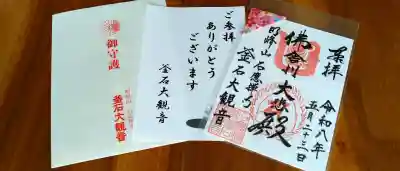 御守護
釜石大観音
ご参拝
ありがとう
ございます
釜石大観音
奉拝
令和八年
五月二十三日
大
殿
明峰山石應禅寺
釜石大観音